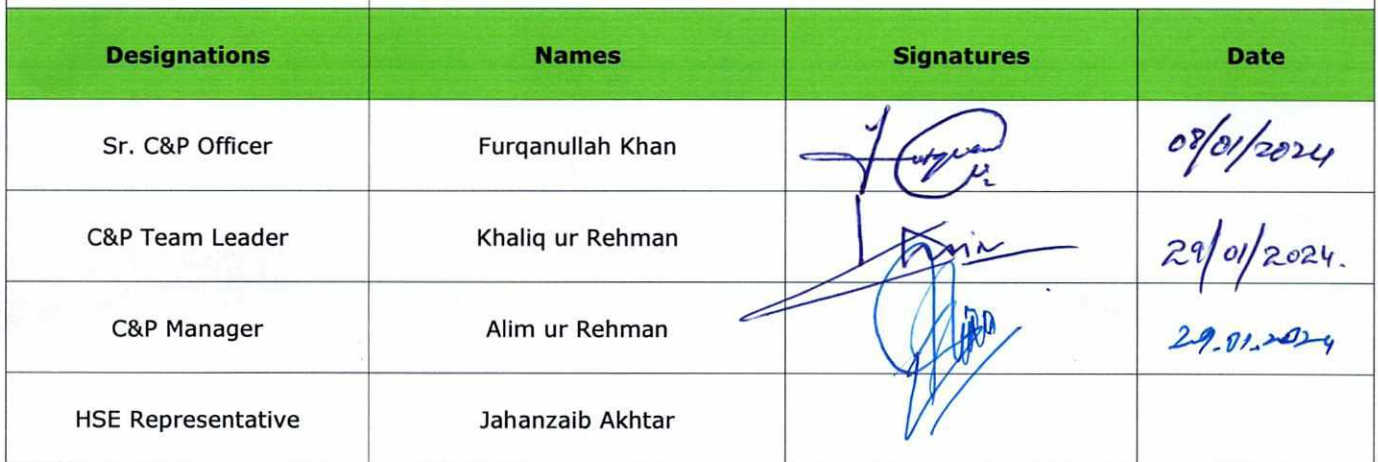 Designations Names Signatures Date
Sr. C&P Officer Furqanullah Khan 08/01/2024
C&P Team Leader Khaliq ur Rehman 29/01/2024.
C&P Manager Alim ur Rehman 29.01.2024
HSE Representative Jahanzaib Akhtar